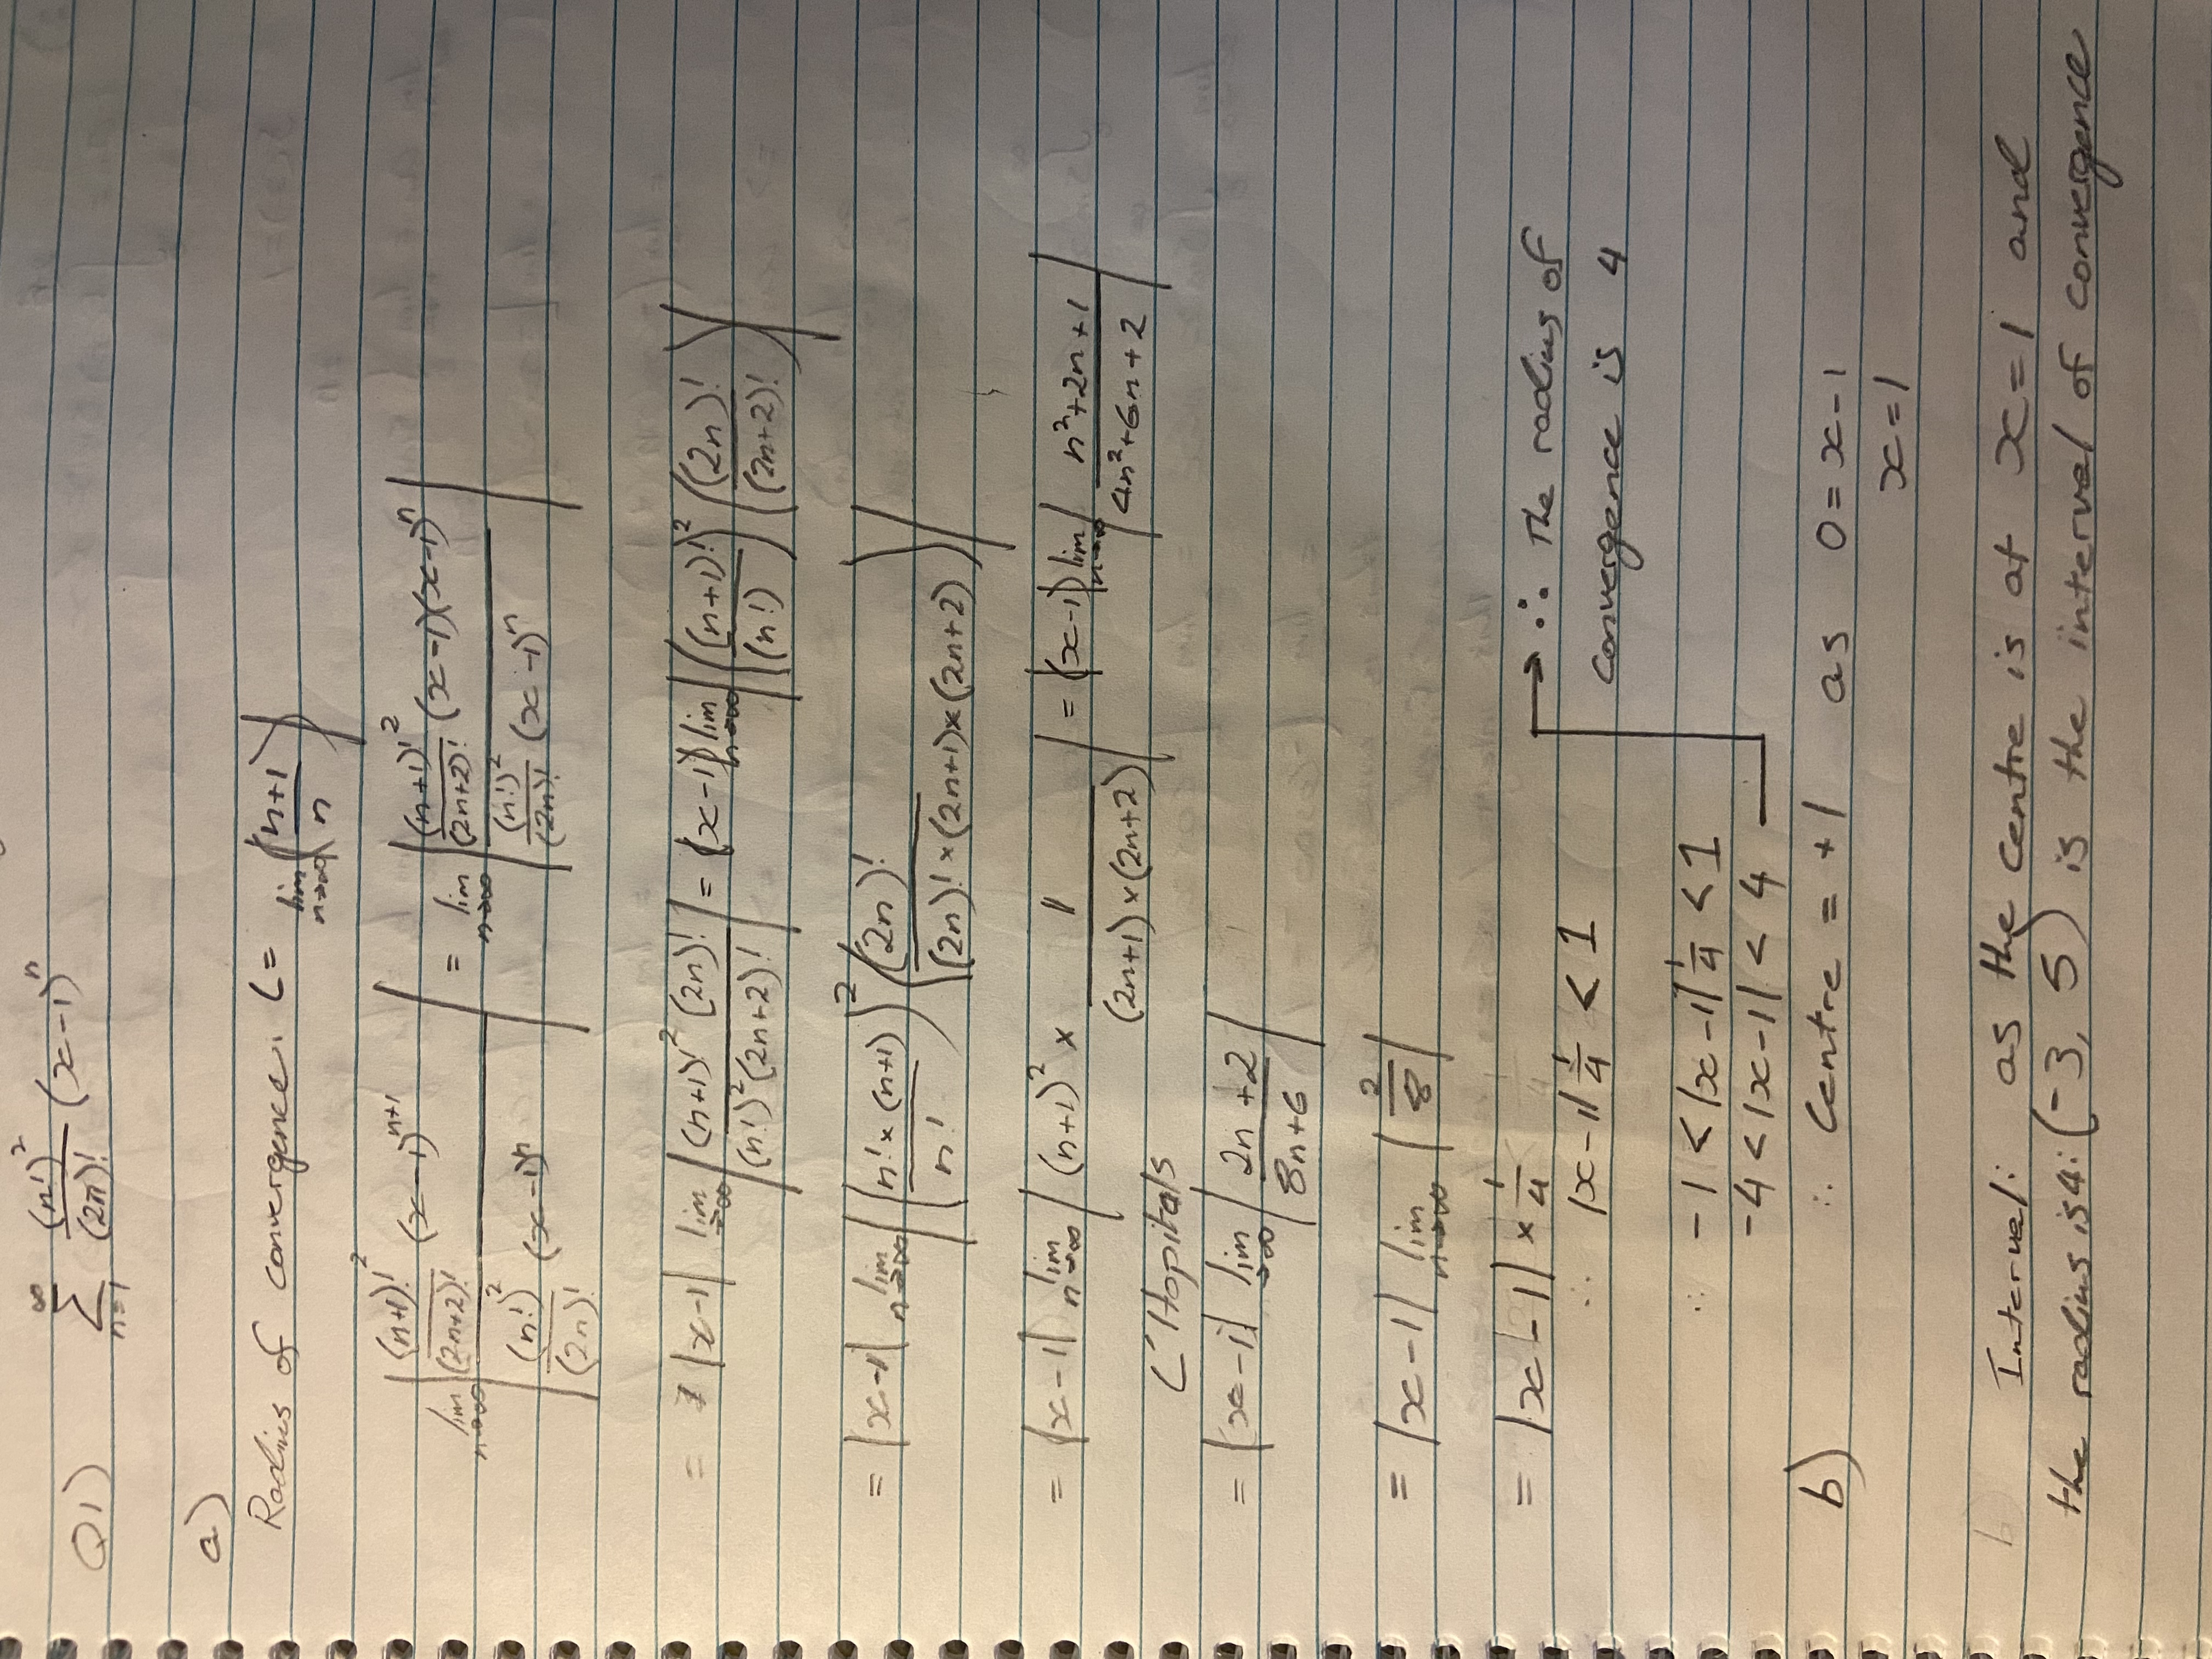 Q1) ∑_{n=1}^{∞} (n!)²/(2n)! (x-1)ⁿ
a)
Radius of convergence. L = lim_{n→∞} |(n+1)/n|
lim_{n→∞} | ((n+1)!²/(2n+2)! (x-1)^{n+1}) / ((n!)²/(2n)! (x-1)ⁿ) | = lim_{n→∞} | ((n+1)!²/(2n+2)! (x-1)(x-1)ⁿ) / ((n!)²/(2n)! (x-1)ⁿ) |
= |x-1| lim_{→∞} | (n+1)!² (2n)! / (n!)² (2n+2)! | = |x-1| lim_{n→∞} | ((n+1)!/(n!))² ((2n)!/(2n+2)!) |
= |x-1| lim_{n→∞} | (n! × (n+1)/n!)² ((2n)!/(2n)! × (2n+1) × (2n+2)) |
= |x-1| lim_{n→∞} | (n+1)² × 1/(2n+1) × (2n+2) | = |x-1| lim_{n→∞} | n²+2n+1/4n²+6n+2 |
L'Hopitals
= |x-1| lim_{→∞} | 2n+2/8n+6 |
= |x-1| lim_{n→∞} | 2/8 |
= |x-1| × 1/4
∴ |x-1| 1/4 < 1
→ ∴ The radius of
convergence is 4
∴ -1 < |x-1| 1/4 < 1
-4 < |x-1| < 4
b) ∴ Centre = +1 as 0 = x-1
x = 1
b Interval: as the centre is at x=1 and
the radius is 4: (-3, 5) is the interval of convergence